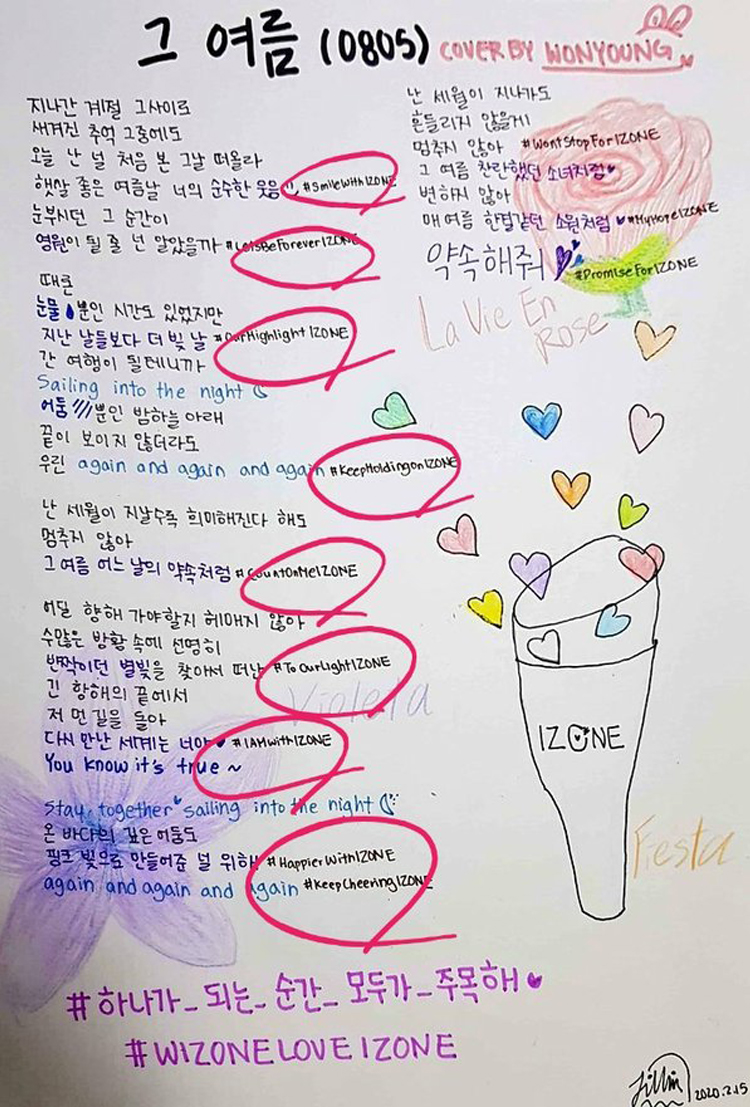 그 여름 (0805) COVER BY WONYOUNG
지나간 계절 그사이로
새겨진 추억 그중에도
오늘 난 널 처음 본 그날 떠올라
햇살 좋은 여름날 너의 순수한 웃음 #SmileWithIZONE
눈부시던 그 순간이
영원이 될 줄 넌 알았을까 #LetsBeForeverIZONE
때론
눈물 뿐인 시간도 있었지만
지난 날들보다 더 빛 날 #OurHighlightIZONE
간 여행이 될테니까
Sailing into the night
어둠 뿐인 밤하늘 아래
끝이 보이지 않더라도
우린 again and again and again #KeepHoldingonIZONE
난 세월이 지날수록 희미해진다 해도
멈추지 않아
그 여름 어느 날의 약속처럼 #CountOnMeIZONE
어딜 향해 가야할지 헤매지 않아
수많은 방황 속에 선명히
반짝이던 별빛을 찾아서 떠난 #ToOurLightIZONE
긴 항해의 끝에서
저 먼 길을 돌아
다시 만난 세계는 너야 ♥ #IAMWithIZONE
You know it's true ~
stay together sailing into the night
온 바다의 깊은 어둠도
핑크 빛으로 만들어준 널 위해 #HappierWithIZONE
again and again and again #KeepCheeringIZONE
난 세월이 지나가도
흔들리지 않을게
멈추지 않아 #WontStopForIZONE
그 여름 찬란했던 소녀처럼 ♥
변하지 않아
매 여름 한결같던 소원처럼 ♥ #MyHopeIZONE
약속해줘 #PromiseForIZONE
La Vie En
Rose
Violeta
IZONE
Fiesta
#하나가_되는_순간_모두가_주목해 ♥
#WIZONELOVEIZONE
2020.2.15